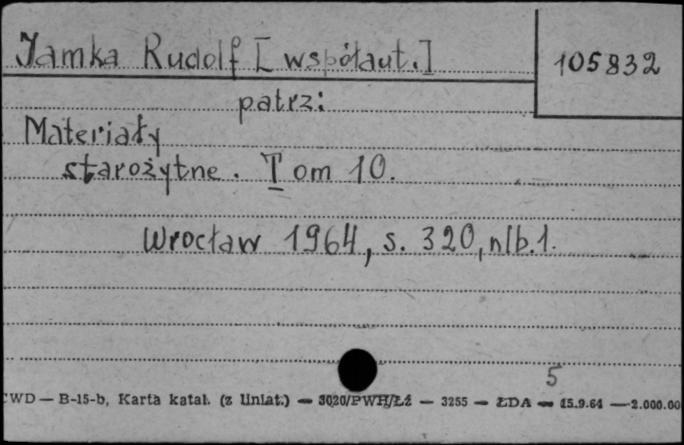 Jamka Rudolf [współaut.]
105832
patrz:
Materiały
starożytne. Tom 10.
Wrocław 1964, s. 320, nlb. 1.
5
CWD — B-15-b, Karta katal. (z liniat.) — 3020/PWH/Łź — 3255 — ŁDA — 15.9.64 — 2.000.00